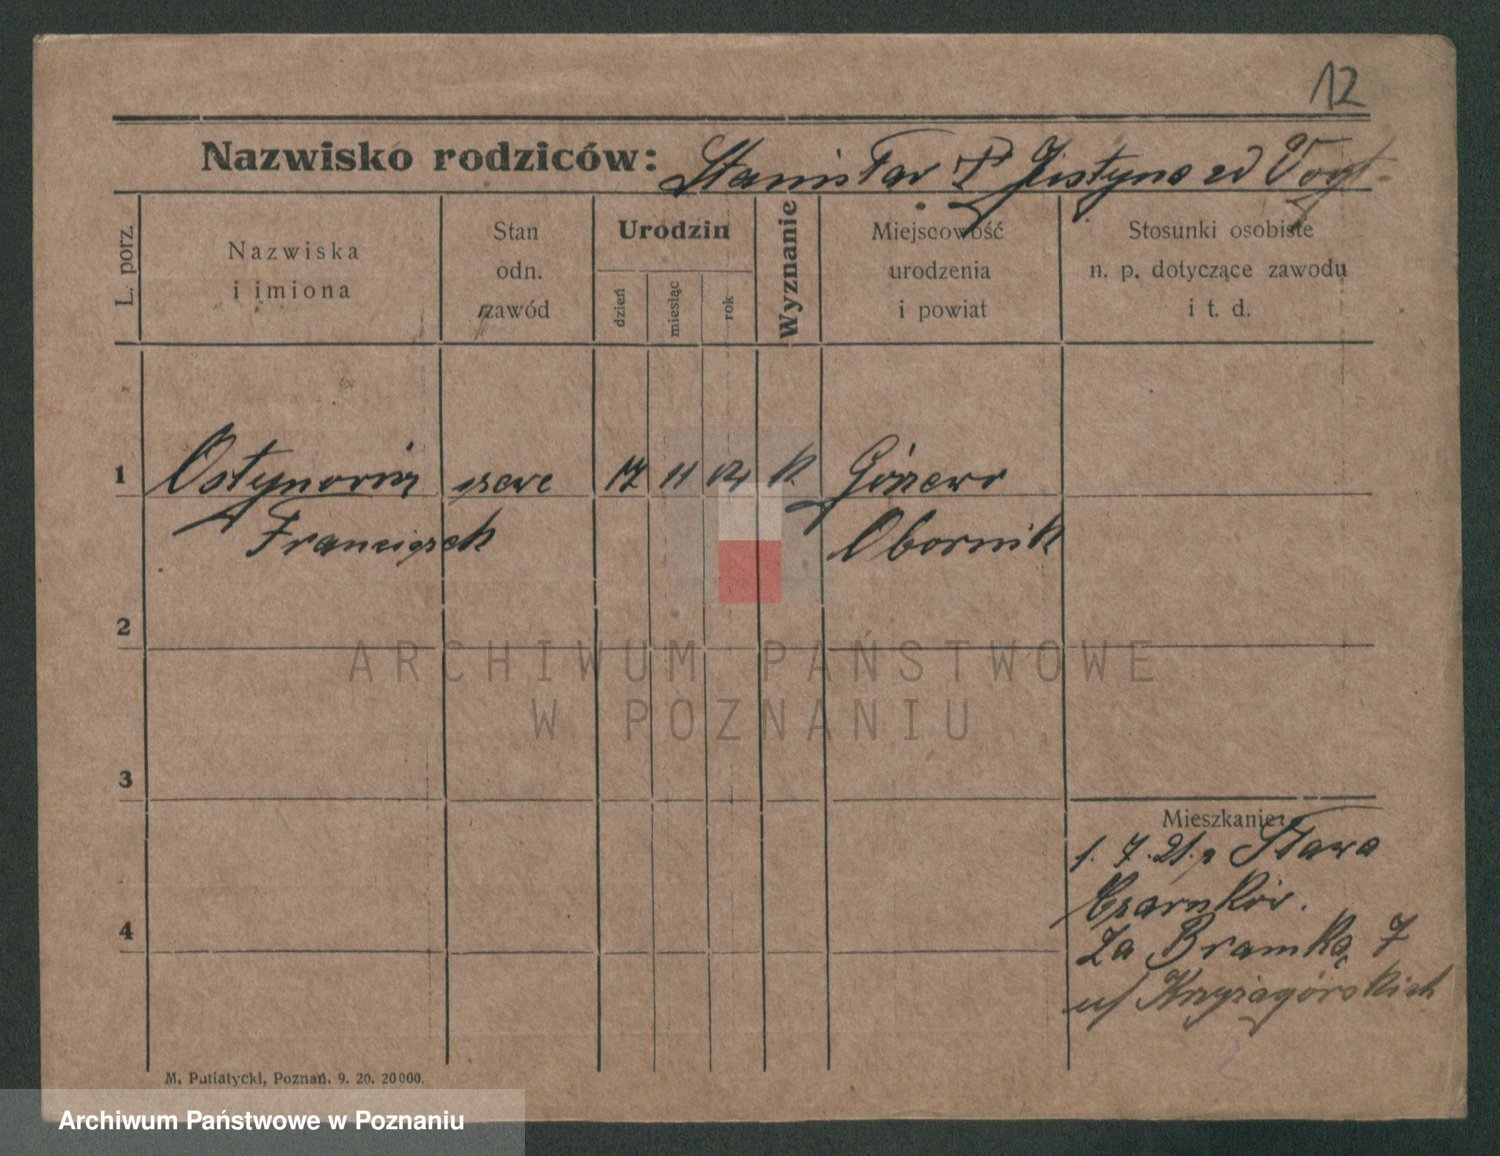 12
Nazwisko rodziców: Stanisław Justyna zd Vogt
L. porz.
Nazwiska
i imiona
Stan
odn.
zawód
Urodzin
dzień
miesiąc
rok
Wyznanie
Miejscowość
urodzenia
i powiat
Stosunki osobiste
n. p. dotyczące zawodu
i t. d.
1 17 11 04 k
Franciszek Obornik
2
ARCHIWUM PAŃSTWOWE
W POZNANIU
3
Mieszkanie:
1. 7. 21. Stawa
Czarnków.
4 Za Bramką 7
u/ Krzyżagórskich
M. Putiatycki, Poznań. 9. 20. 20000.
Archiwum Państwowe w Poznaniu